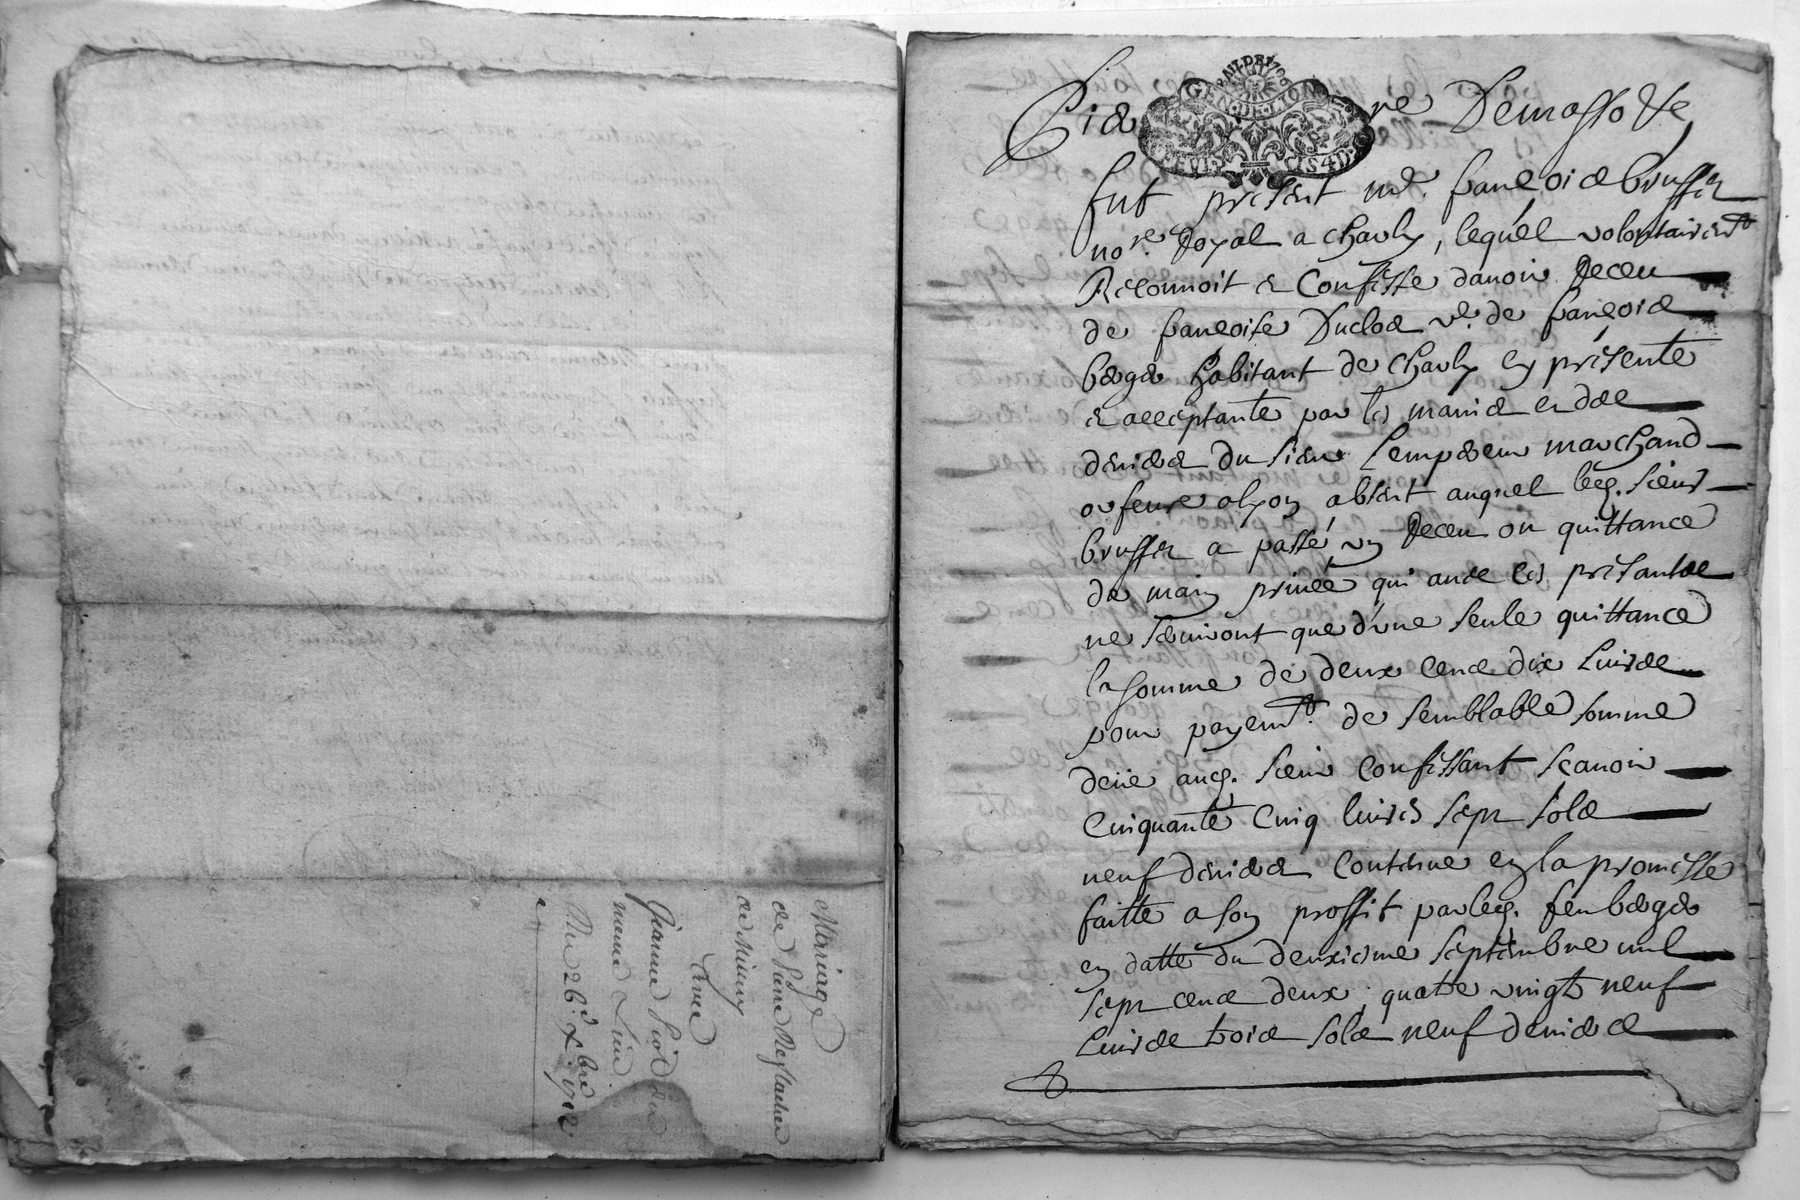 Mariage
de Pierre Reglache
de Mivery
avec
Jeanne
Du 26.e Xbre 1712
GEN. DE. LION
fut present me. françois bruffin
no.re Royal a charly, lequel volontairemt
Reconnoit et Confesse davoir Receu
de françoise Duclos ve. de françois
berger habitant de charly cy présente
et acceptante par les mains et des
deniers du sieur Lempereur marchand
orfevre a lyon absent auquel led. sieur
bruffin a passé un Receu ou quittance
de main privée qui avec les presantes
ne serviront que d'une seule quittance
la somme de deux cens dix Livres
pour payemt. de semblable somme
deüe aud. sieur Confessant sçavoir
Cinquante Cinq livres sept sols
neuf deniers contenue en la promesse
faitte a son proffit par led. feu berger
en datte du deuxieme septembre mil
sept cens deux, quatre vingt neuf
Livres trois sols neuf deniers